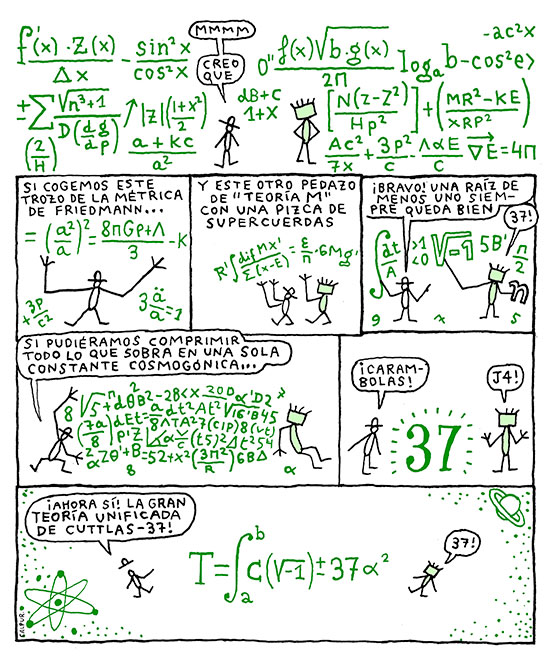 MMMM
CREO
QUE
f'(x) · Z(x)
Δx
- sin²x
cos²x
0" f(x)√b·g(x)
2π
logₐ b-cos²e>
-ac²x
± Σ √n³+1
D(d g/d p)
↗ |z| (1+x²)
2
dB+C
1+X
[N(z-Z²)
Hp²]
+ (MR²-KE
xRP²)
(2
H)
a+kc
a²
Ac²
7x
+ 3p²
C
- ΛαE
C
∇E=4π
SI COGEMOS ESTE
TROZO DE LA MÉTRICA
DE FRIEDMANN...
= (a²/a)² = 8πGρ+Λ
3
-K
+3P
c²
3 ä/a=1
Y ESTE OTRO PEDAZO
DE "TEORÍA M"
CON UNA PIZCA DE
SUPERCUERDAS
R'∫ dif Mx'
Σ(x-E)
= ε/n · 6Mg'
¡BRAVO! UNA RAÍZ DE
MENOS UNO SIEM-
PRE QUEDA BIEN
37!
∫ dt
A
>1
<0
√-1
5B'
π
2
n
9
5
SI PUDIÉRAMOS COMPRIMIR
TODO LO QUE SOBRA EN UNA SOLA
CONSTANTE COSMOGÓNICA...
8
α
¡CARAM-
BOLAS!
J4!
37
¡AHORA SÍ! LA GRAN
TEORÍA UNIFICADA
DE CUTTLAS-37!
T=∫ₐᵇ C(√-1)±37α²
37!